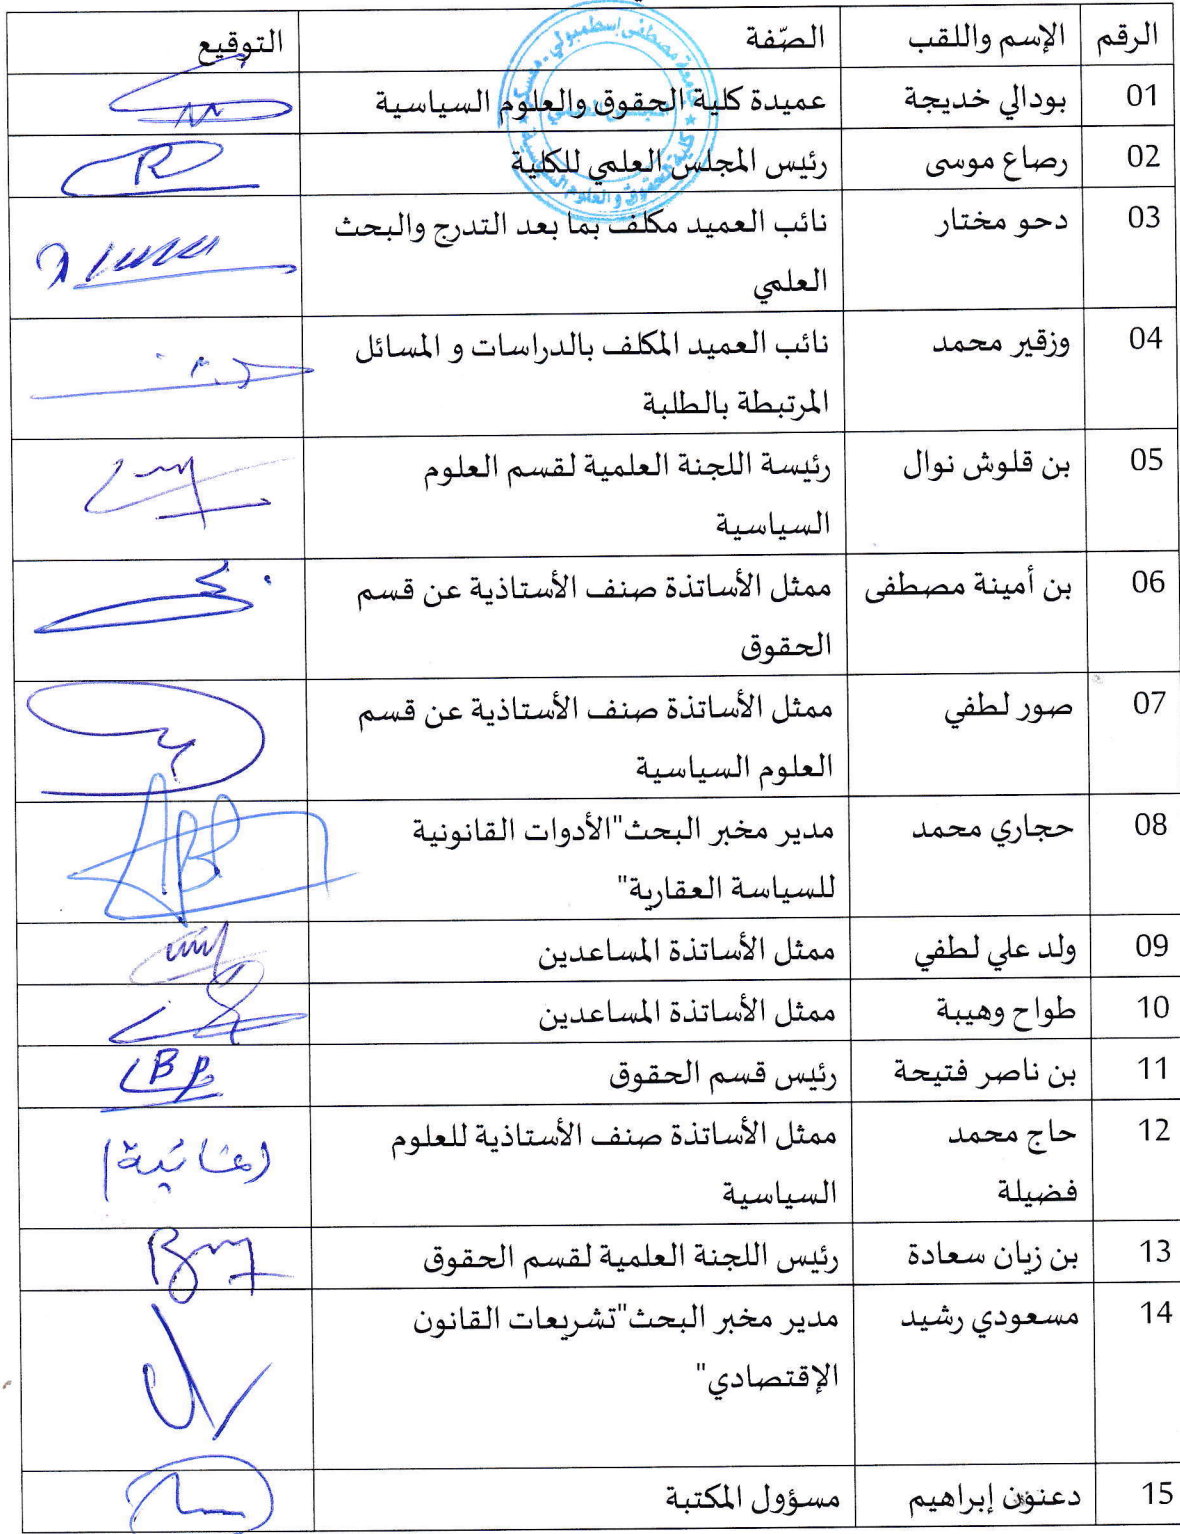 الرقم الإسم واللقب الصّفة التوقيع
جامعة مصطفى إسطمبولي . معسكر
كلية الحقوق والعلوم السياسية
01 بودالي خديجة عميدة كلية الحقوق والعلوم السياسية
02 رصاع موسى رئيس المجلس العلمي للكلية
03 دحو مختار نائب العميد مكلف بما بعد التدرج والبحث
العلمي
04 وزقير محمد نائب العميد المكلف بالدراسات و المسائل
المرتبطة بالطلبة
05 بن قلوش نوال رئيسة اللجنة العلمية لقسم العلوم
السياسية
06 بن أمينة مصطفى ممثل الأساتذة صنف الأستاذية عن قسم
الحقوق
07 صور لطفي ممثل الأساتذة صنف الأستاذية عن قسم
العلوم السياسية
08 حجاري محمد مدير مخبر البحث"الأدوات القانونية
للسياسة العقارية"
09 ولد علي لطفي ممثل الأساتذة المساعدين
10 طواح وهيبة ممثل الأساتذة المساعدين
11 بن ناصر فتيحة رئيس قسم الحقوق
12 حاج محمد ممثل الأساتذة صنف الأستاذية للعلوم
فضيلة السياسية
13 بن زيان سعادة رئيس اللجنة العلمية لقسم الحقوق
14 مسعودي رشيد مدير مخبر البحث"تشريعات القانون
الإقتصادي"
15 دعنون إبراهيم مسؤول المكتبة